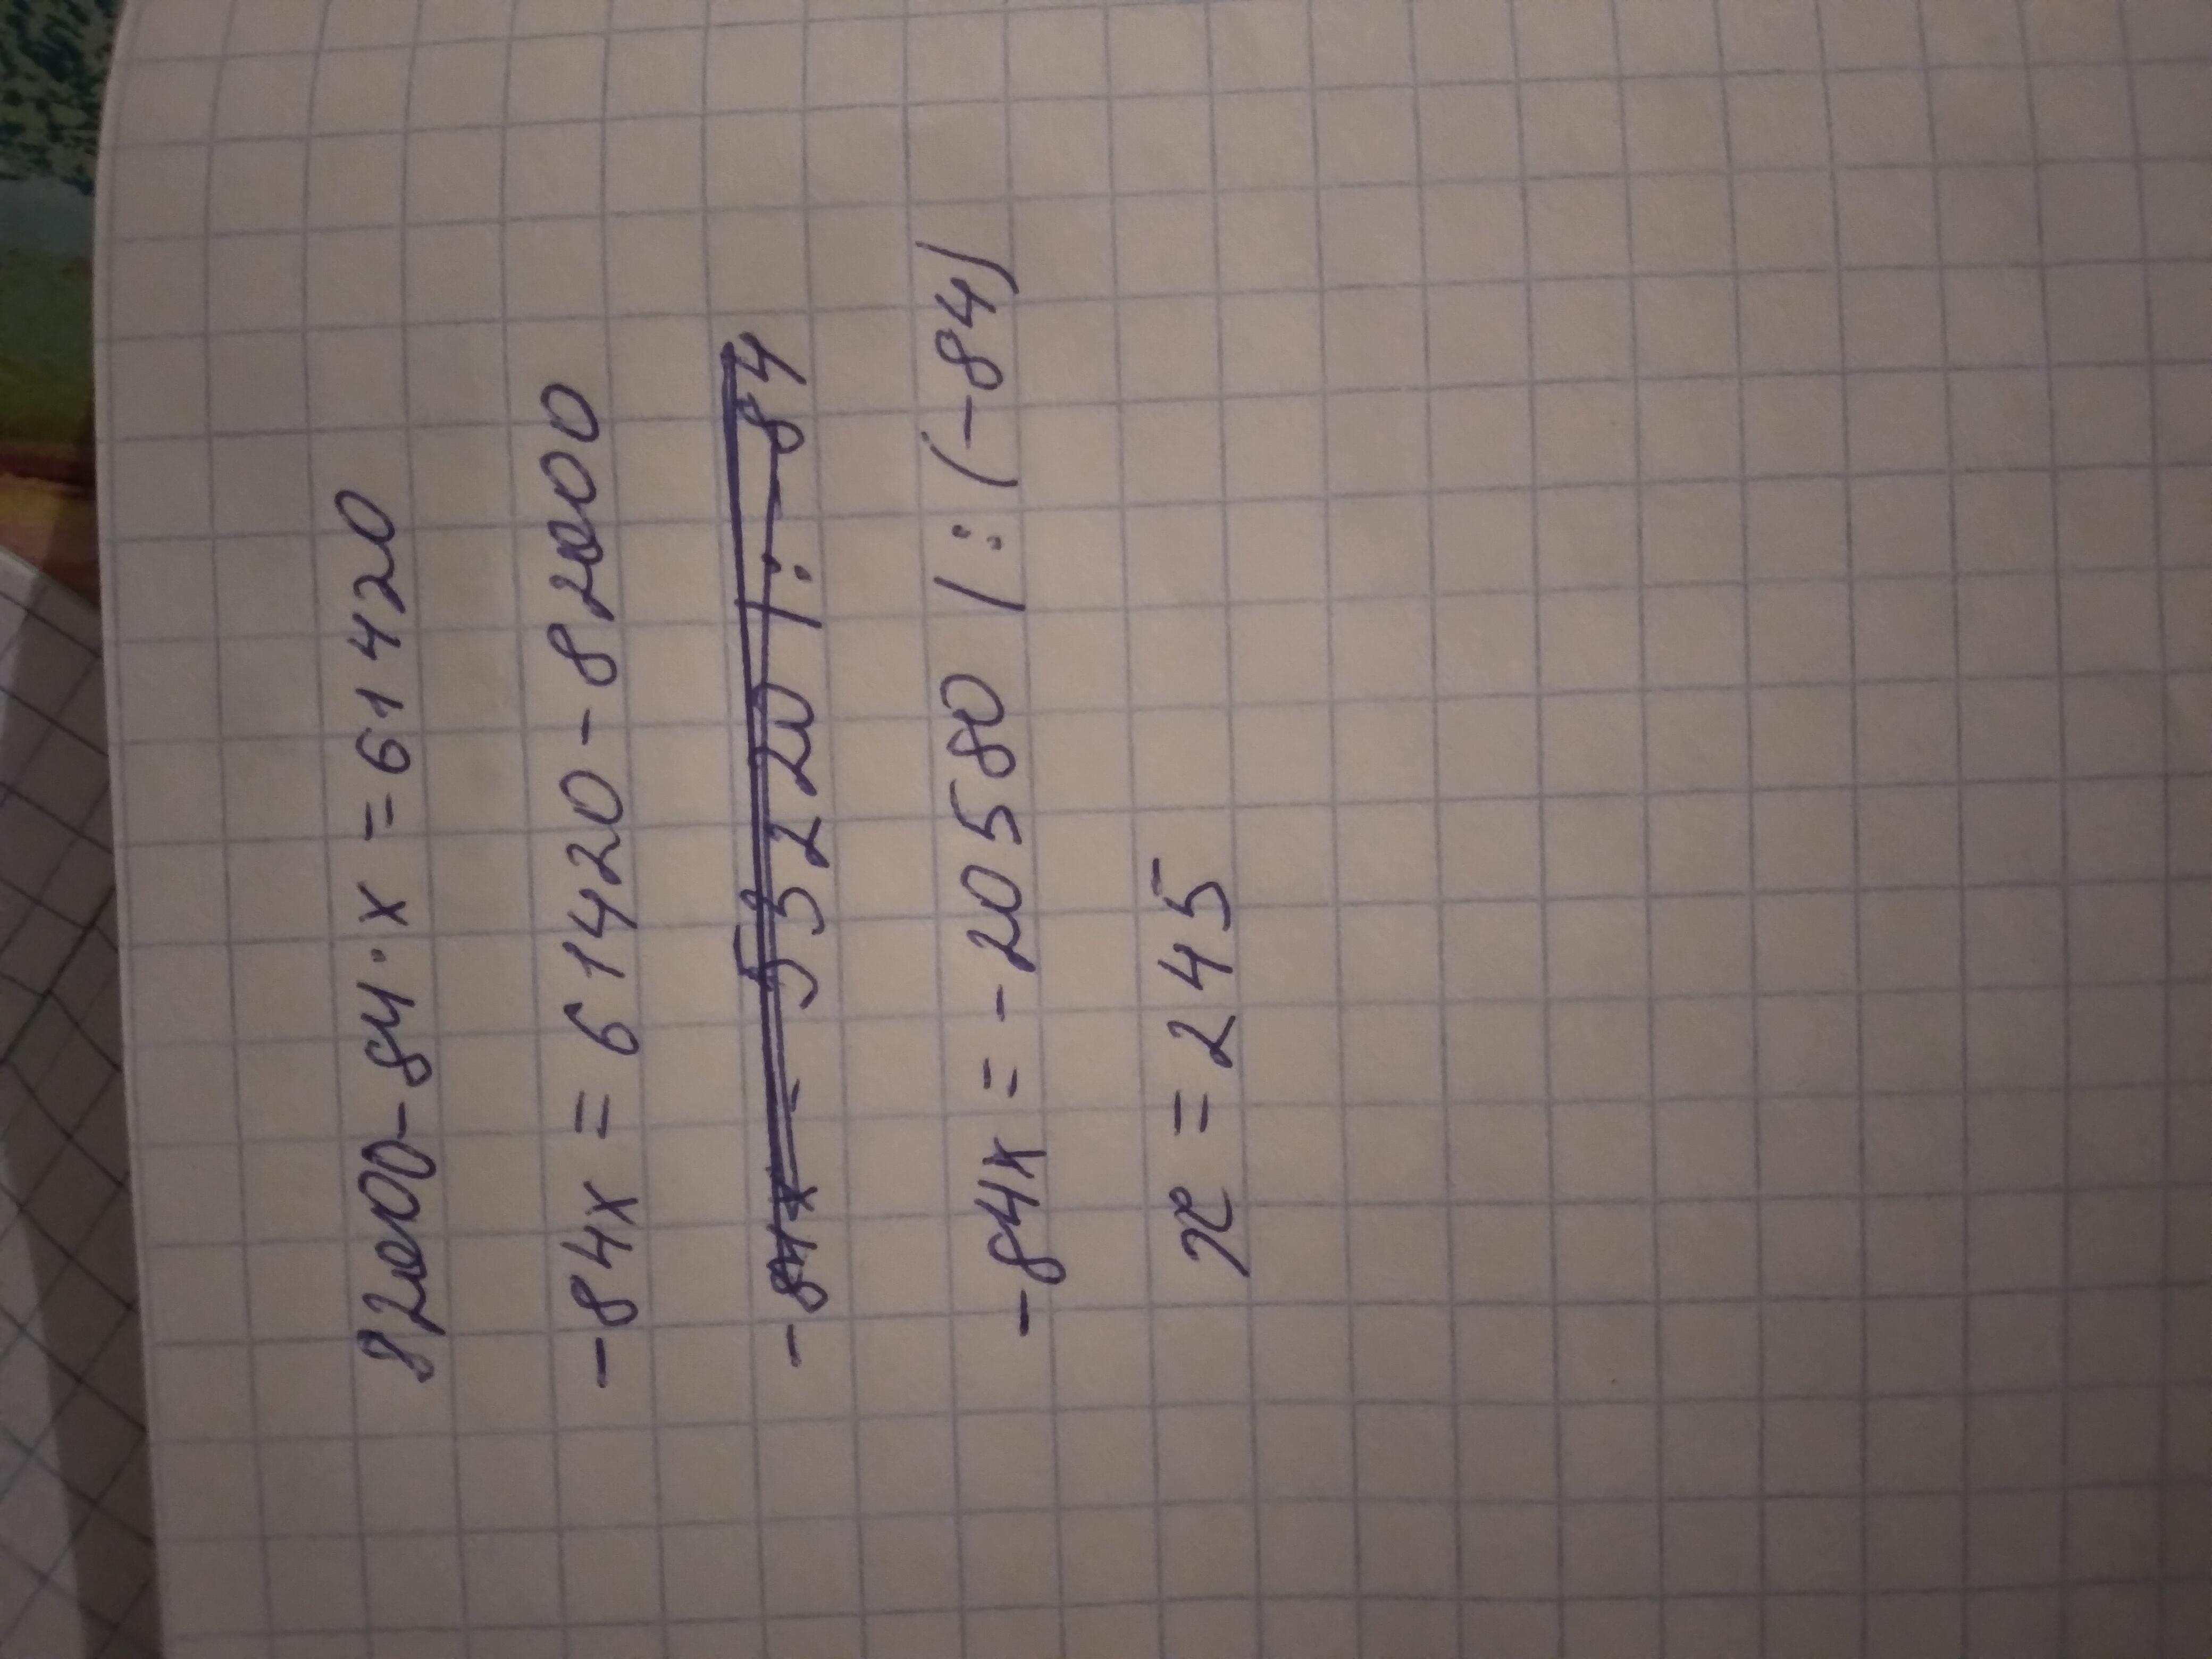 82000-84·x=61420
-84x=61420-82000
-84x=-20580 |:(-84)
x=245